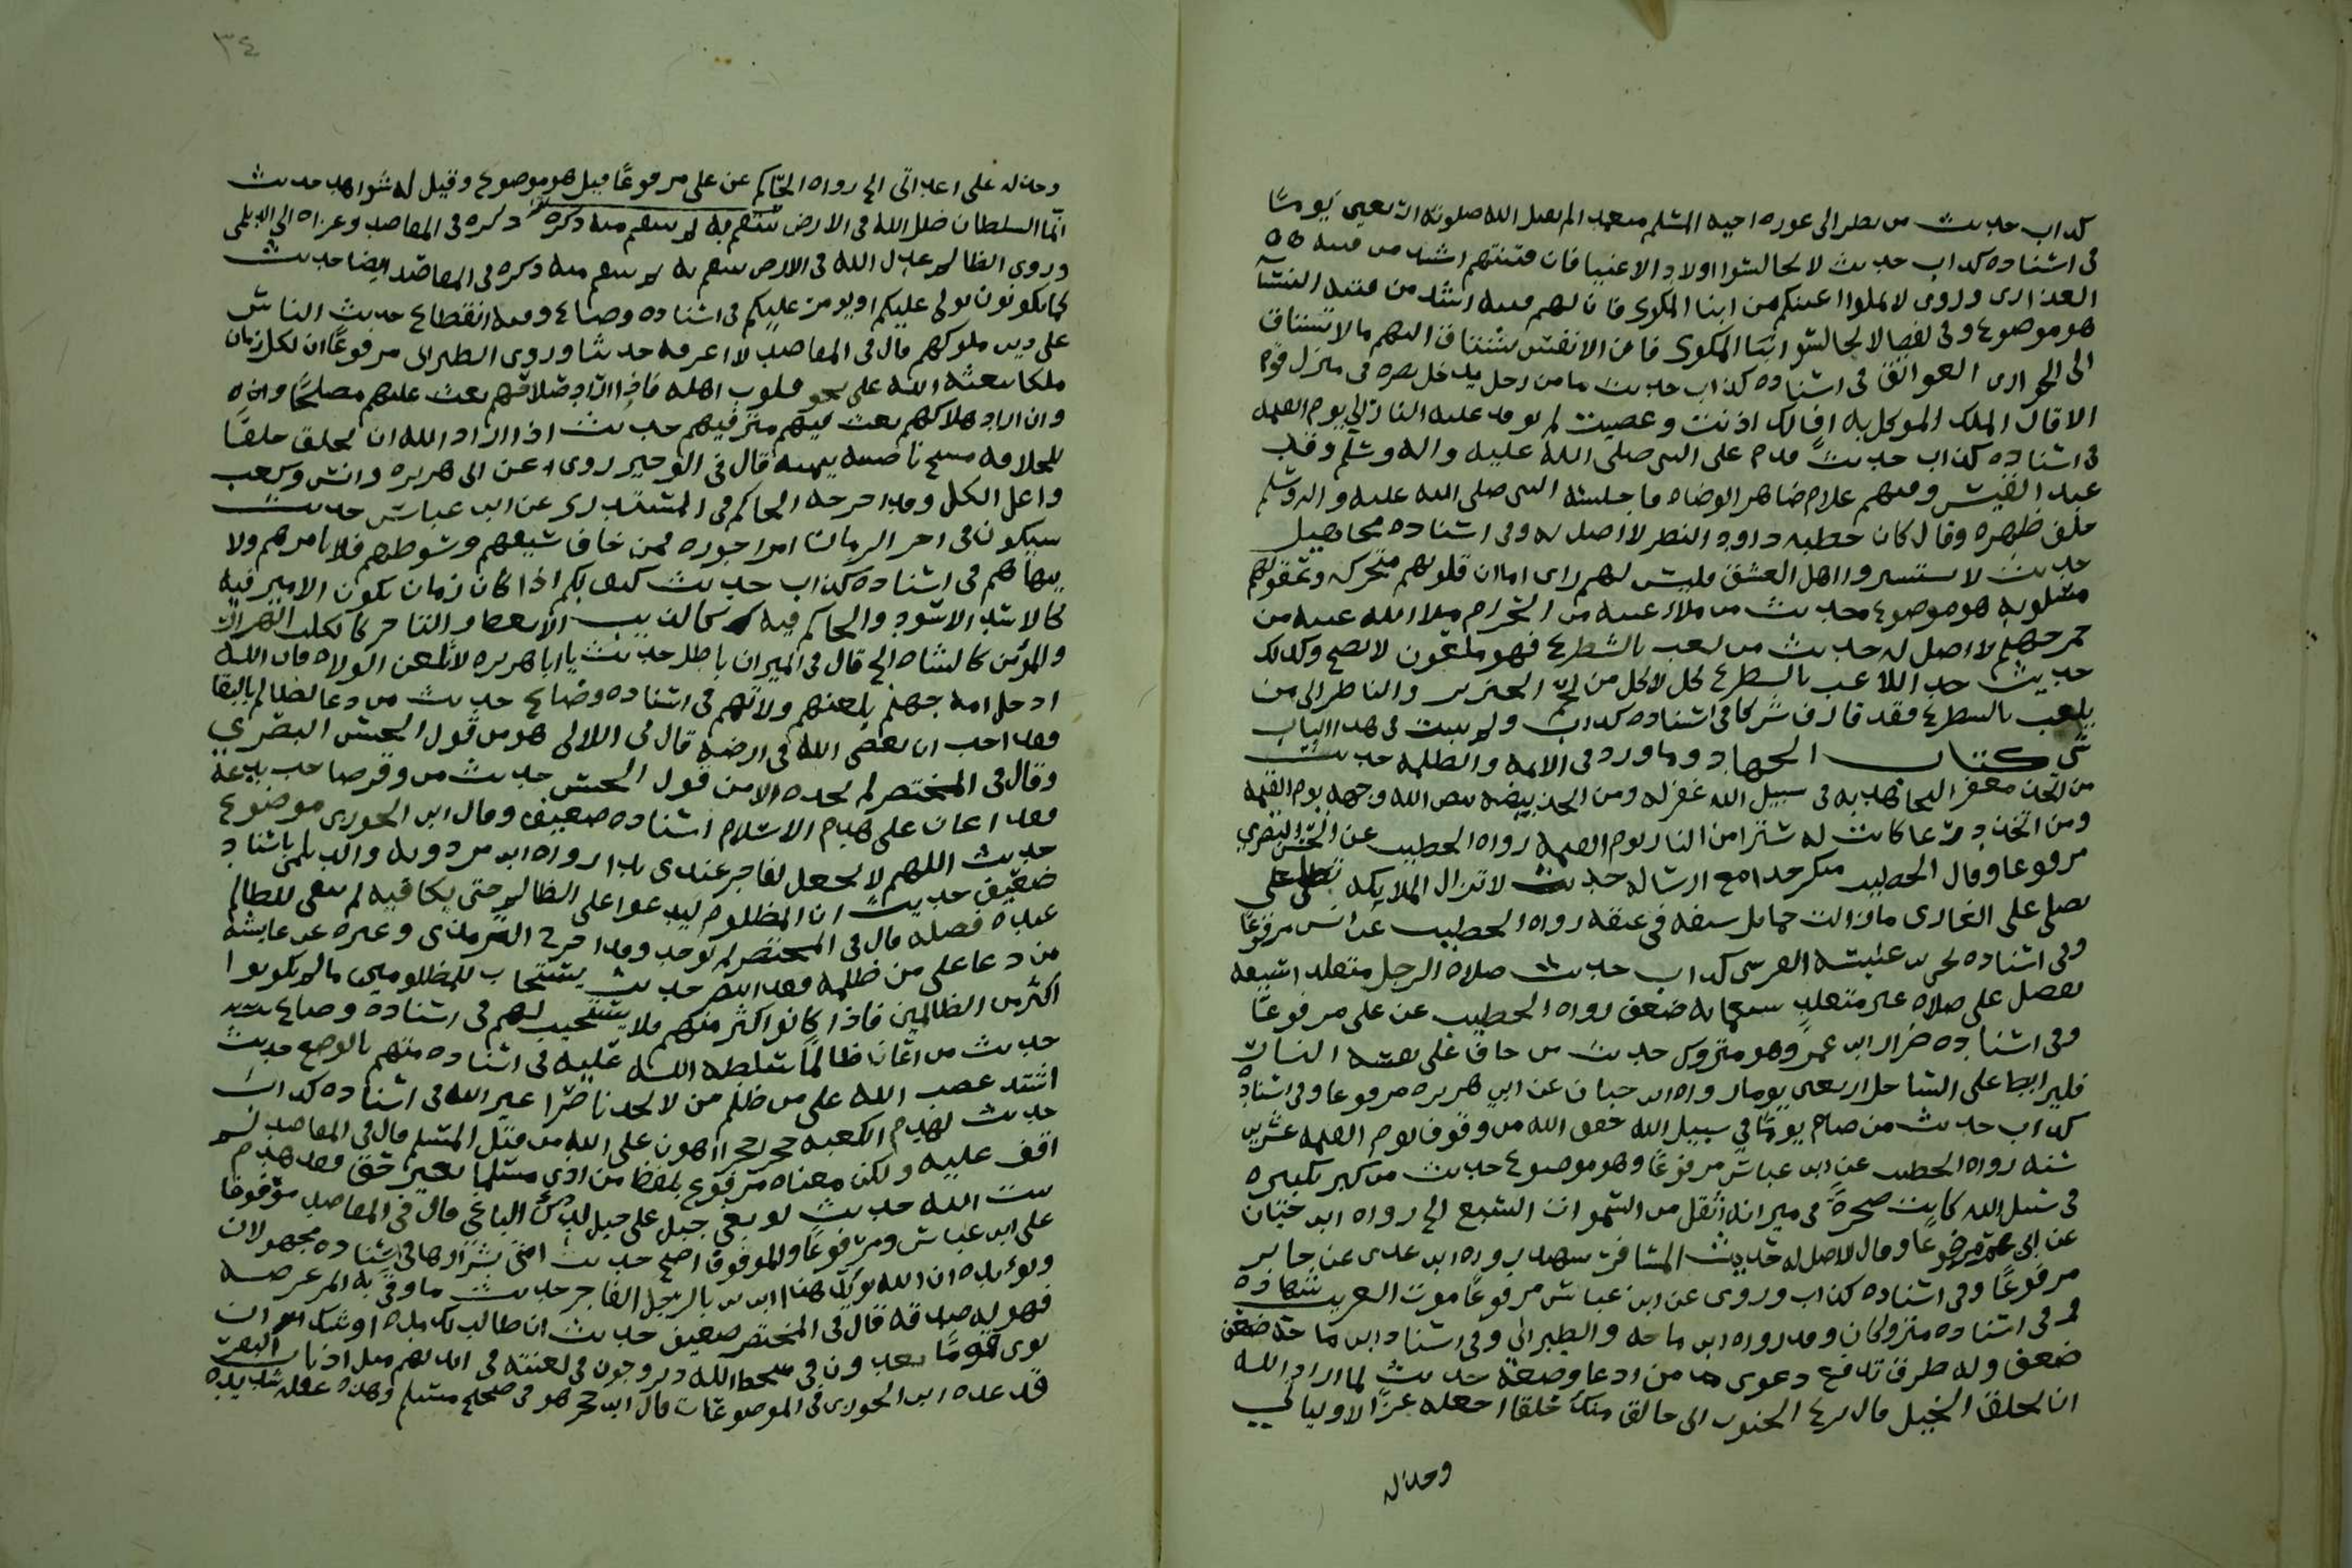 كداب حديث من نظر الى عورة اخيه المسلم متعمدا لم يقبل الله صلوته اربعين يوما
في اسناده كداب حديث لا تجالسوا اولاد الاغنيا فان فتنتهم اشد من فتنة
العذارى وروى لا تملوا اعينكم من ابنا الملوك فان لهم فتنة اشد من فتنة النسا
هو موضوع وفي لفظ لا تجالسوا ابنا الملوك فان الانفس تشتاق اليهم ما لا تشتاق
الى الجوارى العواتق في اسناده كداب حديث ما من رجل يدخل بصره في منزل قوم
الا قال الملك الموكل به اف لك اذنت وعصيت ثم توقد عليه النار الى يوم القيمة
في اسناده كداب حديث قدم على النبي صلى الله عليه واله وسلم وفد
عبد القيس وفيهم غلام ظاهر الوضاه فاجلسه النبي صلى الله عليه واله وسلم
خلف ظهره وقال كان خطيه داود النظر لا اصل له وفي اسناده مجاهيل
حديث لا تستسيروا اهل العشق فليس لهم راى اما ان قلوبهم متحركه وعقولهم
مسلوبه هو موضوع حديث من ملا عينه من الحرام ملا الله عينه من
جمر جهنم لا اصل له حديث من لعب بالشطرنج فهو ملعون لا يصح وكذلك
حديث حد اللاعب بالشطرنج كل لاكل من لحم الخنزير والناظر الى من
يلعب بالشطرنج فقد قارف شركا في اسناده كداب ولم يثبت في هذا الباب
شي كتاب الجهاد وما ورد في الائمة والظلمه حديث
من اتخذ مغفر اليجاهد به في سبيل الله غفر له ومن اتخذ بيضه بيض الله وجهه يوم القيمة
ومن اتخذ درعا كانت له سترا من النار يوم القيمة رواه الخطيب عن الحسن البصري
مرفوعا وقال الخطيب منكر جدا مع ارساله حديث لا تزال الملايكه تصلى على
تصلي على الغازى ما زالت حمايل سيفه في عنقه رواه الخطيب عن انس مرفوعا
وفي اسناده يحيى بن عنبسه القرسى كداب حديث صلاة الرجل متقلد اسيفه
تفضل على صلاة غير متقلد سبعمايه ضعف رواه الخطيب عن على مرفوعا
وفي اسناده ضرار ابن عمرو وهو متروك حديث من خاف على نفسه النار
فليرابط على الساحل اربعين يوما رواه ابن حبان عن ابي هريره مرفوعا وفي اسناده
كداب حديث من صام يوما في سبيل الله خفف الله من وقوف يوم القيمه عشرين
سنه رواه الخطيب عن ابن عباس مرفوعا وهو موضوع حديث من كبر تكبيره
في سبيل الله كانت صخرة في ميزانه اثقل من السموات السبع الخ رواه ابن حبان
عن ابي عمر مرفوعا وقال لا اصل له حديث المسافر شهيد رواه ابن عدى عن جابر
مرفوعا وفي اسناده كداب وروى عن ابن عباس مرفوعا موت الغريب شهادة
في اسناده متروكان وقد رواه ابن ماجه والطبراني وفي اسناد ابن ماجه ضعف
ضعف وله طرق تدفع دعوى من ادعا وضعه حديث لما اراد الله
ان يخلق الخيل قال لريح الجنوب اني خالق منك خلقا اجعله عزا لاوليائي
ومذله
٣٤
ومذله على اعدائى الخ رواه الحاكم عن على مرفوعا قيل هو موضوع وقيل له شواهد حديث
انما السلطان ظل الله في الارض ينتقم به ثم ينتقم منه ذكره في المقاصد وعزاه الى الديلمى
وروى الظالم عدل الله في الارض ينتقم به ثم ينتقم منه ذكره في المقاصد ايضا حديث
كما تكونون يولى عليكم او يومر عليكم في اسناده وضاع وفيه انقطاع حديث الناس
على دين ملوكهم قال في المقاصد لا اعرفه حديثا وروى الطبرانى مرفوعا ان لكل زمان
ملكا يبعثه الله على نحو قلوب اهله فاذا اراد صلاحهم بعث عليهم مصلحا
وان اراد هلاكهم بعث فيهم مترفيهم حديث اذا اراد الله ان يخلق خلقا
للخلافة مسح ناصيته بيمينه قال في الوجيز روى عن ابى هريره وانس وكعب
واعل الكل وقد اخرجه الحاكم في المستدرك عن ابن عباس حديث
سيكون في اخر الزمان امرا جوره فمن خاف سيفهم وسوطهم فلا يامرهم ولا
ينهاهم في اسناده كداب حديث كيف بكم اذا كان زمان يكون الامير فيه
كالاسد الاسود والحاكم فيه كالذيب الامعط والتاجر كالكلب الهرار
والمؤمن كالشاه الخ قال في الميزان باطل حديث يا ابا هريره لا تلعن الولاه فان الله
ادخل امه جهنم بلعنهم ولاتهم في اسناده وضاع حديث من دعا لظالم بالبقا
فقد احب ان يعصى الله في ارضه قال في اللالى هو من قول الحسن البصري
وقال في المختصر لم نجده الا من قول الحسن حديث من وقر صاحب بدعة
فقد اعان على هدم الاسلام اسناده ضعيف وقال ابن الجوزى موضوع
حديث اللهم لا تجعل لفاجر عندى يدا رواه ابن مردويه والديلمى باسناد
ضعيف حديث ان المظلوم ليدعوا على الظالم حتى يكافيه ثم يبقى للظالم
عنده فضله قال في المختصر لم يوجد وقد اخرج الترمذى وغيره عن عايشه
من دعا على من ظلمه فقد انتصر حديث يستجاب للمظلومين ما لم يكونوا
اكثر من الظالمين فاذا كانوا اكثر منهم فلا يستجيب لهم في اسناده وضاع
حديث من اعان ظالما سلطه الله عليه في اسناده متهم بالوضع حديث
اشتد غضب الله على من ظلم من لا يجد ناصرا غير الله في اسناده كداب
حديث لهدم الكعبه حجرا حجرا اهون على الله من قتل المسلم قال في المقاصد لم
اقف عليه ولكن معناه مرفوع بلفظ من اذى مسلما بغير حق فقد هدم
بيت الله حديث لو بغي جبل على جبل لدك الباغي قال في المقاصد موقوفا
على ابن عباس ومرفوعا والموقوف اصح حديث امتى شرارها في اسناده مجهولان
ويؤيده ان الله يؤيد هذا الدين بالرجل الفاجر حديث ما وقى به المرء عرضه
فهو له صدقه قال في المختصر ضعيف حديث ان طالت بك مده اوشك ان
ترى قوما يغدون في سخط الله ويروحون في لعنته في ايديهم مثل اذناب البقر
قد عده ابن الجوزى في الموضوعات قال ابن حجر هو في صحيح مسلم وهذه غفله شديده